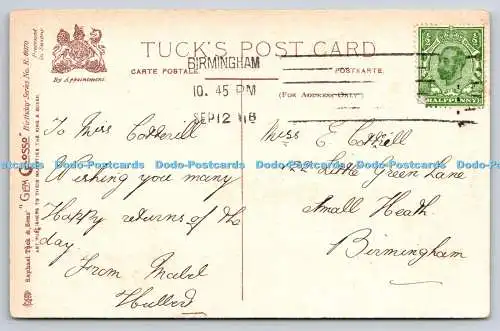 TUCK'S POST CARD
CARTE POSTALE.
POSTKARTE.
(FOR ADDRESS ONLY)
By Appointment
Raphael Tuck & Sons' "GEM GLOSSO" Birthday Series No.
ART PUBLISHERS TO THEIR MAJESTIES THE KING & QUEEN.
BIRMINGHAM
10. 45 PM
SEP 12
HALFPENNY
To Miss Cotterill
Wishing you many
Happy returns of the
day.
From Mabel
Miss E. Cotterill
22 Little Green Lane
Small Heath.
Birmingham
Dodo-Postcards Dodo-Postcards Dodo-Postcards Dodo-Postcards Dodo-Postcards